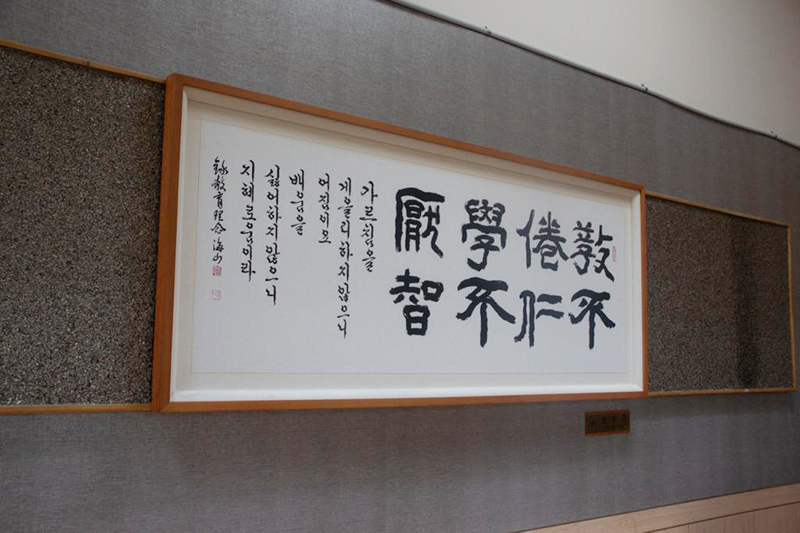 敎不
倦仁
學不
厭智
가르침을
게을리하지않으니
어짐이오
배움을
싫어하지않으니
지혜로움이라
錄敎育理念 海山